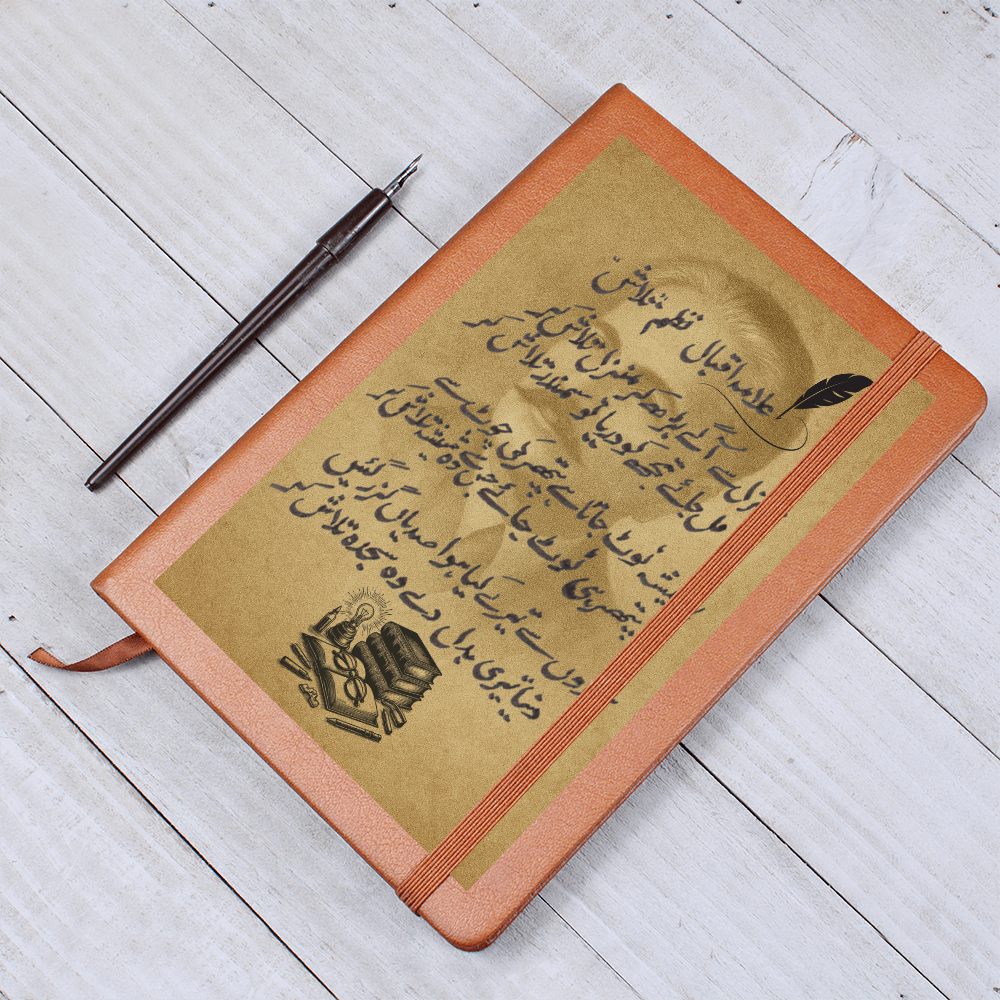 علامہ اقبال نظم تلاش
سے آگے بڑھ کر منزل تلاش کر
مل جائے تجھ کو دریا تو سمندر تلاش کر
ٹوٹ جاتا ہے پتھر کی چوٹ سے
پتھر ہی ٹوٹ جائے جس سے وہ شیشہ تلاش کر
سے تیرے کیا ہوا صدیاں گزر گئیں
دنیا تیری بدل دے وہ سجدہ تلاش کر